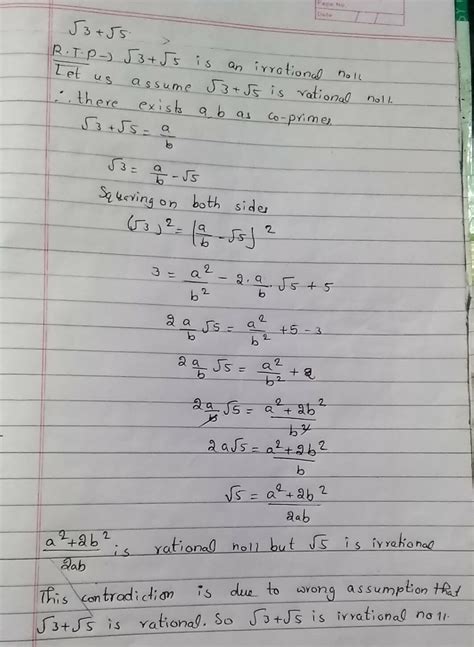 Page No.
Date
√3 + √5
R.T.P → √3 + √5 is an irrational no11.
Let us assume √3 + √5 is rational no11.
∴ there exists a, b as co-primes
√3 + √5 = a/b
√3 = a/b - √5
Squering on both sides
(√3)² = [a/b - √5]²
3 = a²/b² - 2·a/b·√5 + 5
2a/b √5 = a²/b² + 5 - 3
2a/b √5 = a²/b² + 2
2a/b √5 = a² + 2b²/b²
2a√5 = a² + 2b²/b
√5 = a² + 2b²/2ab
a² + 2b²/2ab is rational no11 but √5 is irrational
This contradiction is due to wrong assumption that
√3 + √5 is rational. So √3 + √5 is irrational no11.